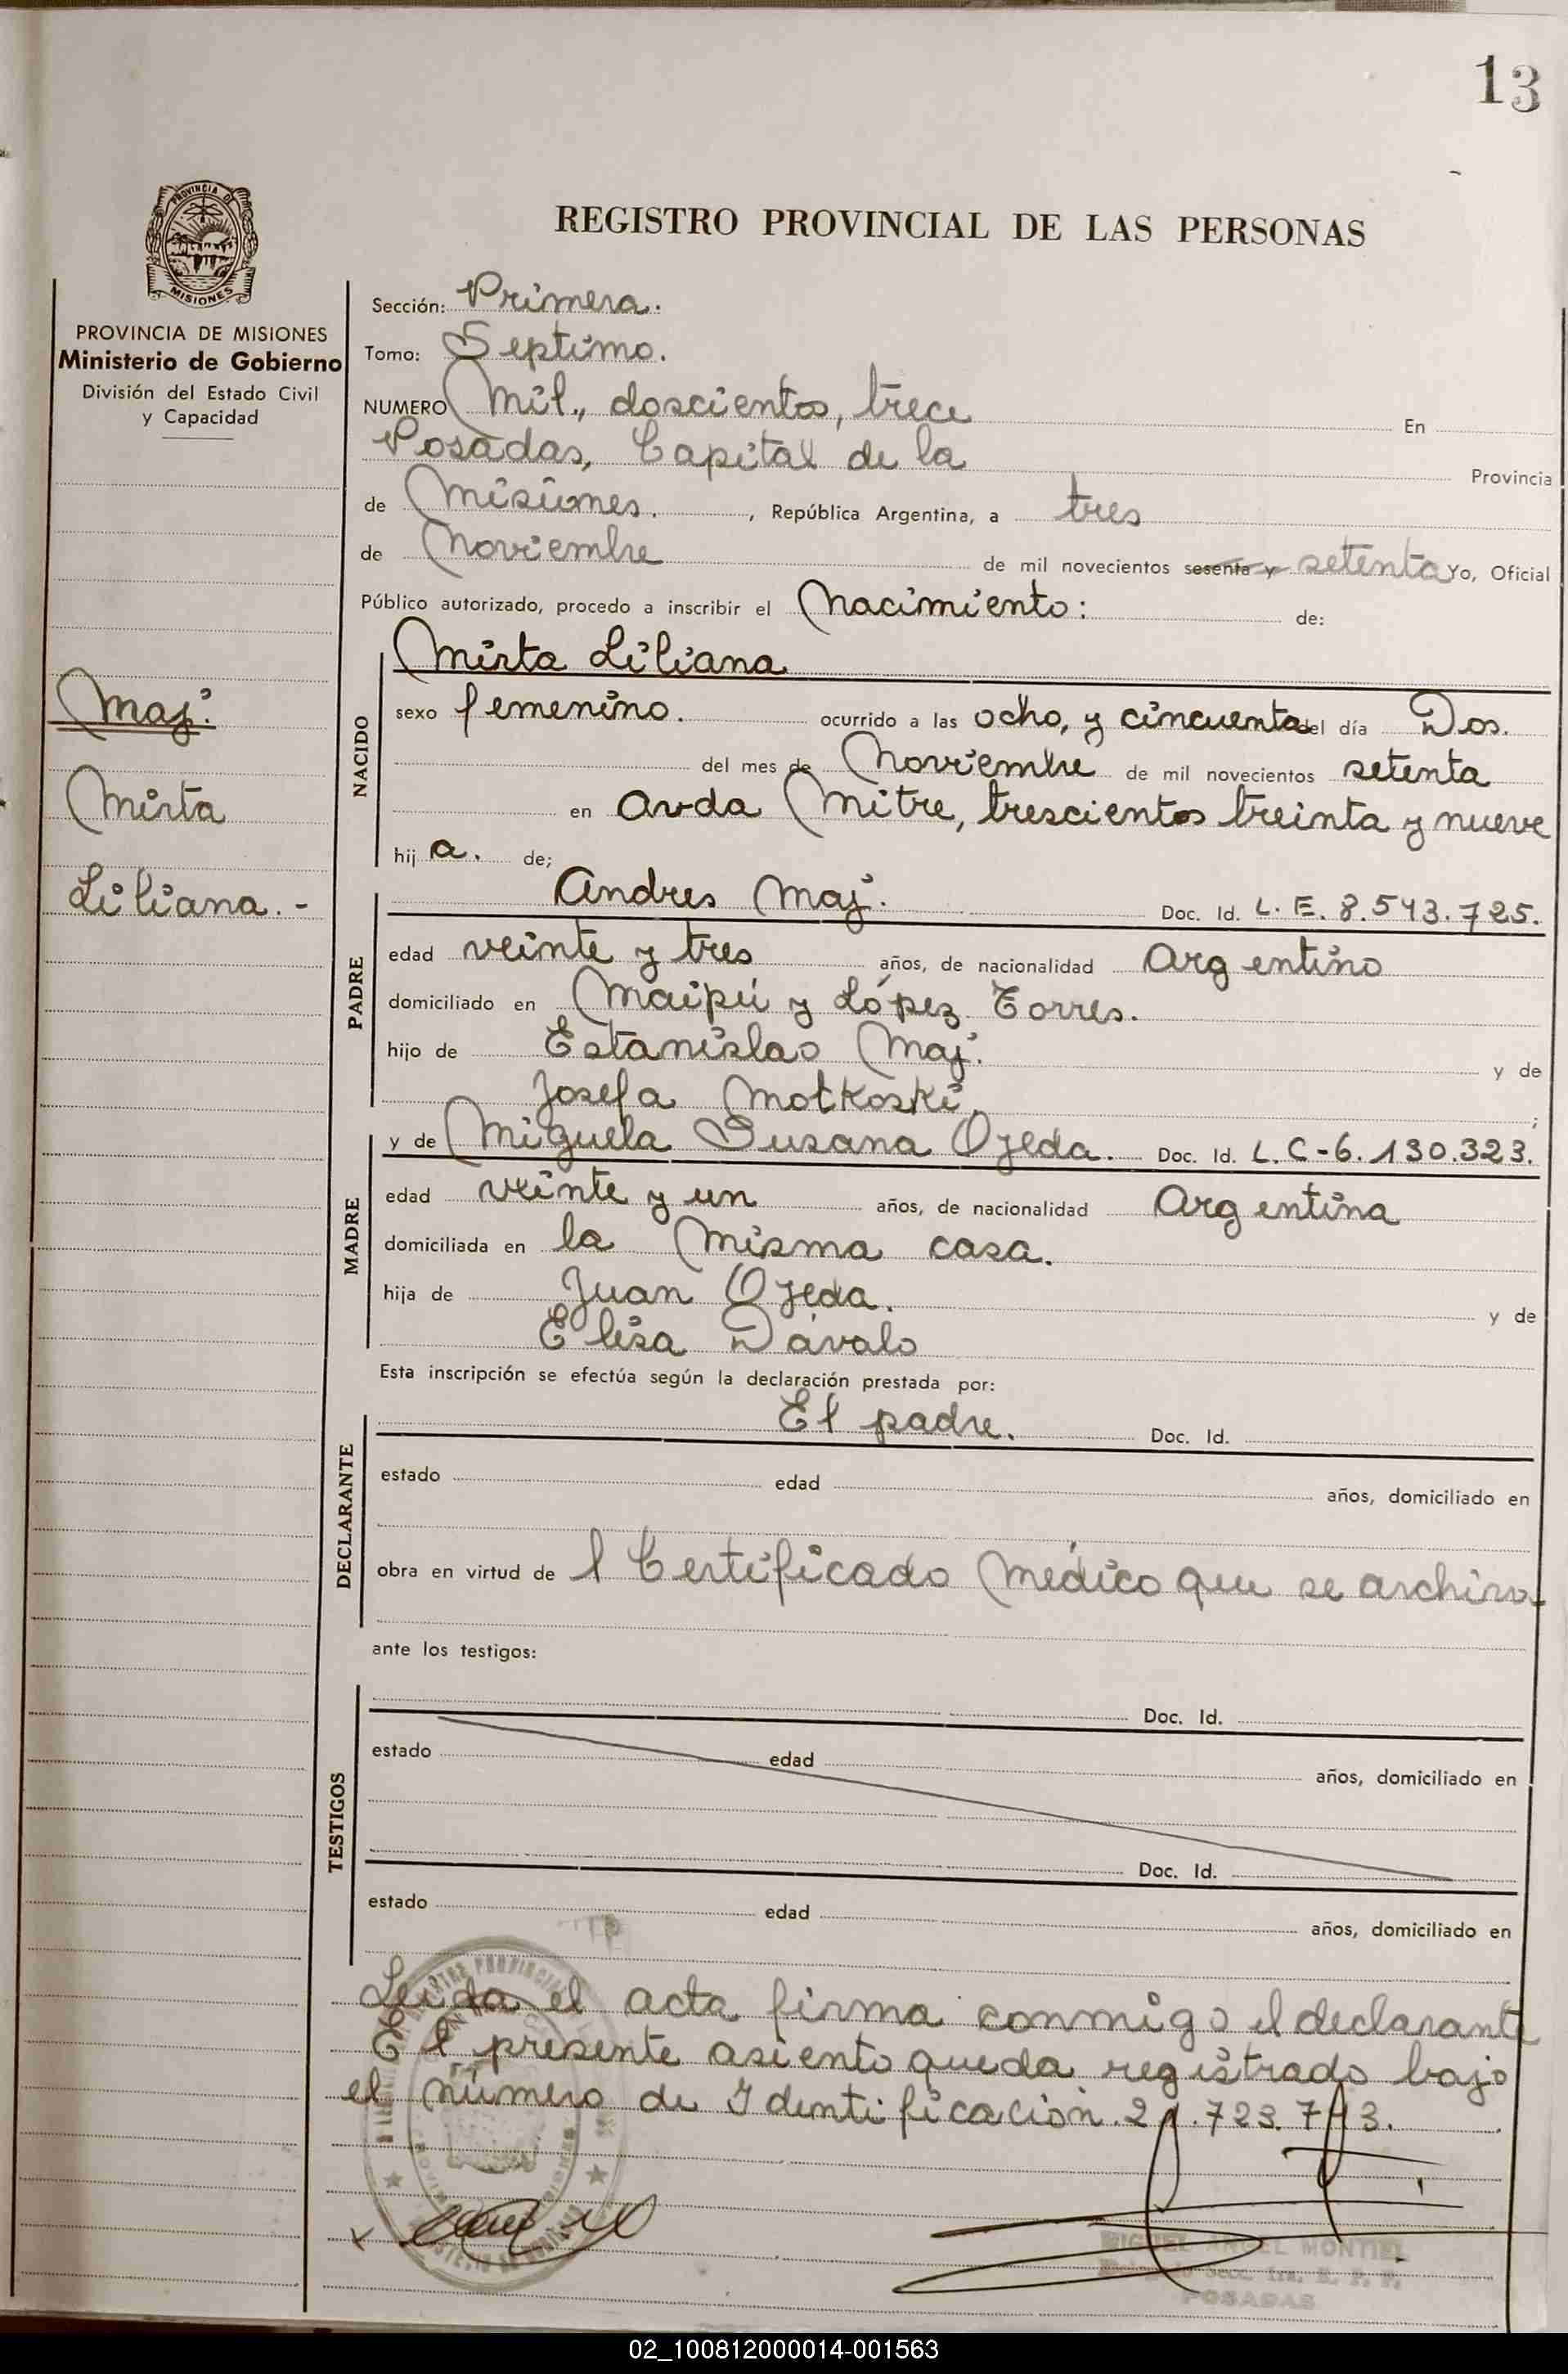 13
PROVINCIA DE
MISIONES
PROVINCIA DE MISIONES
Ministerio de Gobierno
División del Estado Civil
y Capacidad
Maj.
Mirta
Liliana.-
REGISTRO PROVINCIAL DE LAS PERSONAS
Sección: Primera.
Tomo: Septimo.
NUMERO Mil, doscientos, trece En
Posadas, Capital de la Provincia
de Misiones. , República Argentina, a tres
de Noviembre de mil novecientos sesenta y setenta Yo, Oficial
Público autorizado, procedo a inscribir el Nacimiento: de:
NACIDO
Mirta Liliana
sexo femenino. ocurrido a las ocho, y cincuenta del día Dos.
del mes de Noviembre de mil novecientos setenta
en Avda Mitre, trescientos treinta y nueve
hij a. de;
PADRE
Andres Maj. Doc. Id. L. E. 8.543.725.
edad veinte y tres años, de nacionalidad Argentino
domiciliado en Maipú y López Torres.
hijo de Estanislao Maj. y de
Josefa Motkoski ;
MADRE
y de Miguela Susana Ojeda. Doc. Id. L. C-6.130.323.
edad veinte y un años, de nacionalidad Argentina
domiciliada en la misma casa.
hija de Juan Ojeda. y de
Elisa Dávalo
Esta inscripción se efectúa según la declaración prestada por:
DECLARANTE
El padre. Doc. Id.
estado edad años, domiciliado en
obra en virtud de l Certificado Médico que se archiva
ante los testigos:
TESTIGOS
Doc. Id.
estado edad años, domiciliado en
Doc. Id.
estado edad años, domiciliado en
Leída el acta firma conmigo el declarante
El presente asiento queda registrado bajo
el número de Identificación 21.723.743.
MIGUEL ANGEL MONTIEL
POSADAS
02_100812000014-001563